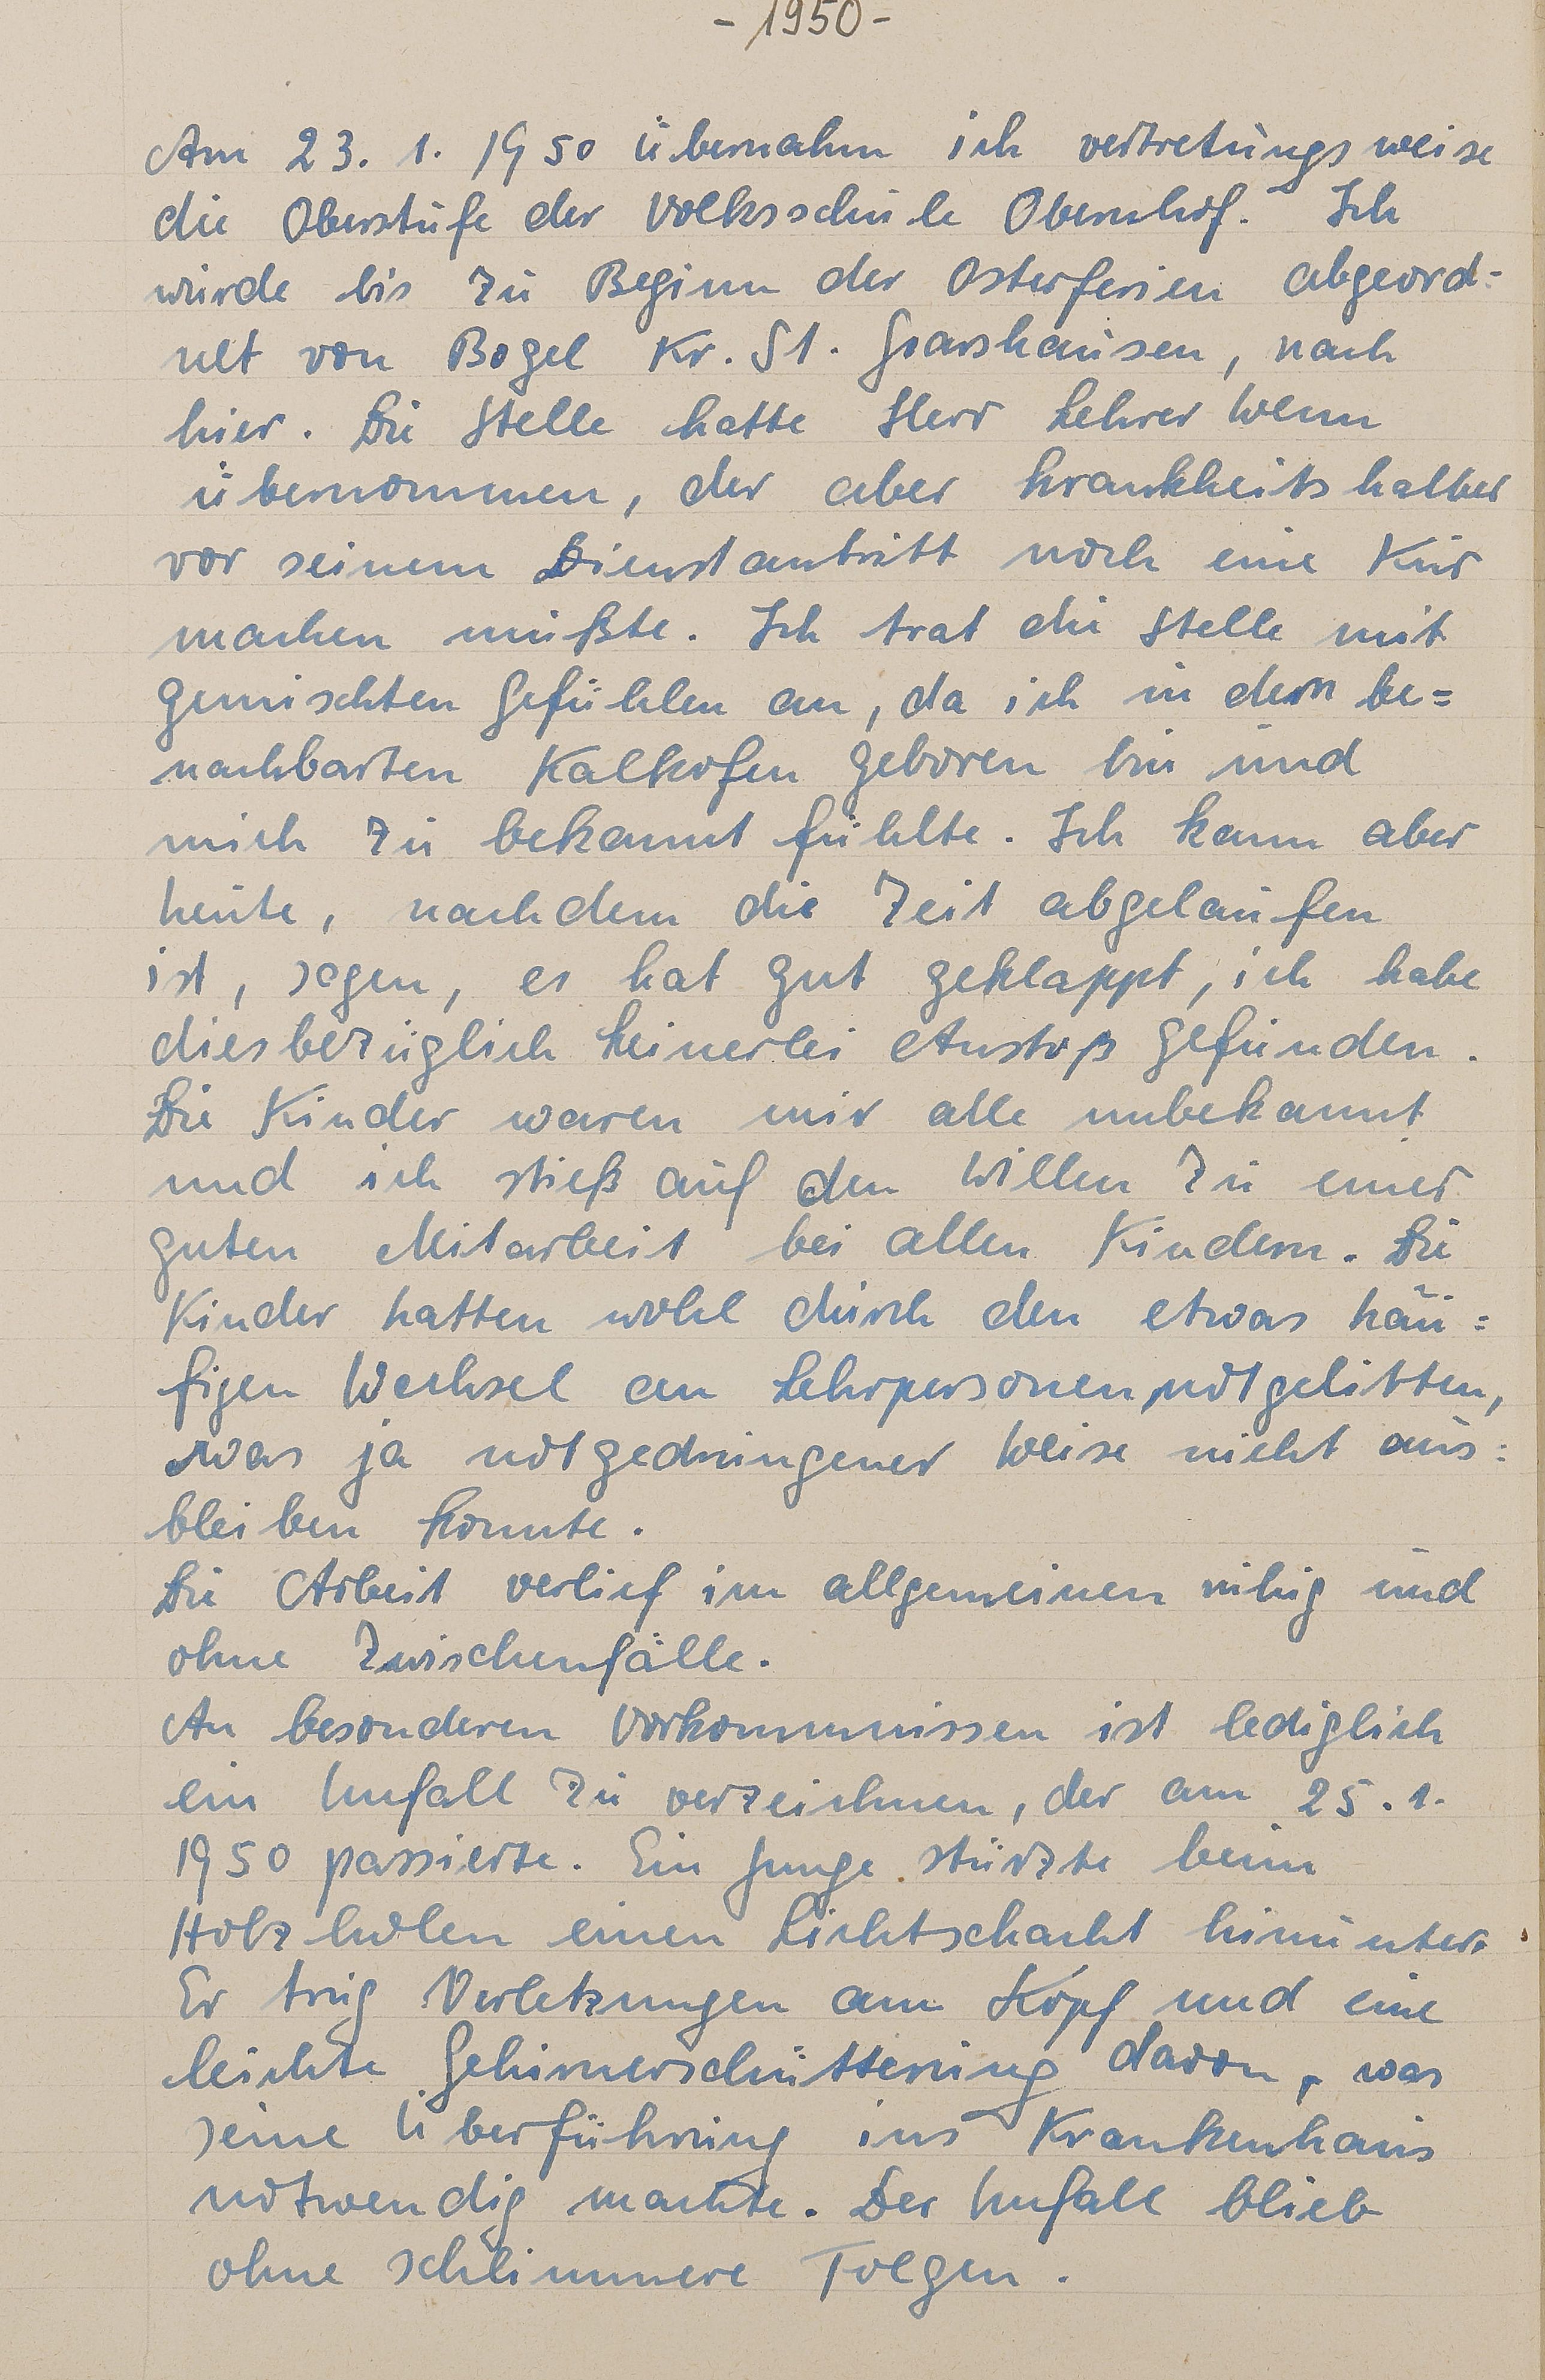 - 1950 -
Am 23. 1. 1950 übernahm ich vertretungsweise
die Oberstufe der Volksschule Obernhof. Ich
wurde bis zu Beginn der Osterferien abgeord=
net von Bogel Kr. St. Goarshausen, nach
hier. Die Stelle hatte Herr Lehrer Wenn
übernommen, der aber krankheitshalber
vor seinem Dienstantritt noch eine Kur
machen mußte. Ich trat die Stelle mit
gemischten Gefühlen an, da ich in dem be=
nachbarten Kalkofen geboren bin und
mich zu bekannt fühlte. Ich kann aber
heute, nachdem die Zeit abgelaufen
ist, sagen, es hat gut geklappt, ich habe
diesbezüglich keinerlei Anstoß gefunden.
Die Kinder waren mir alle unbekannt
und ich stieß auf den Willen zu einer
guten Mitarbeit bei allen Kindern. Die
Kinder hatten wohl durch den etwas häu=
figen Wechsel an Lehrpersonen notgelitten,
was ja notgedrungener Weise nicht aus=
bleiben konnte.
Die Arbeit verlief im allgemeinen ruhig und
ohne Zwischenfälle.
An besonderen Vorkommnissen ist lediglich
ein Unfall zu verzeichnen, der am 25. 1.
1950 passierte. Ein Junge stürzte beim
Holzholen einen Lichtschacht hinunter.
Er trug Verletzungen am Kopf und eine
leichte Gehirnerschütterung davon, was
seine Überführung ins Krankenhaus
notwendig machte. Der Unfall blieb
ohne schlimmere Folgen.